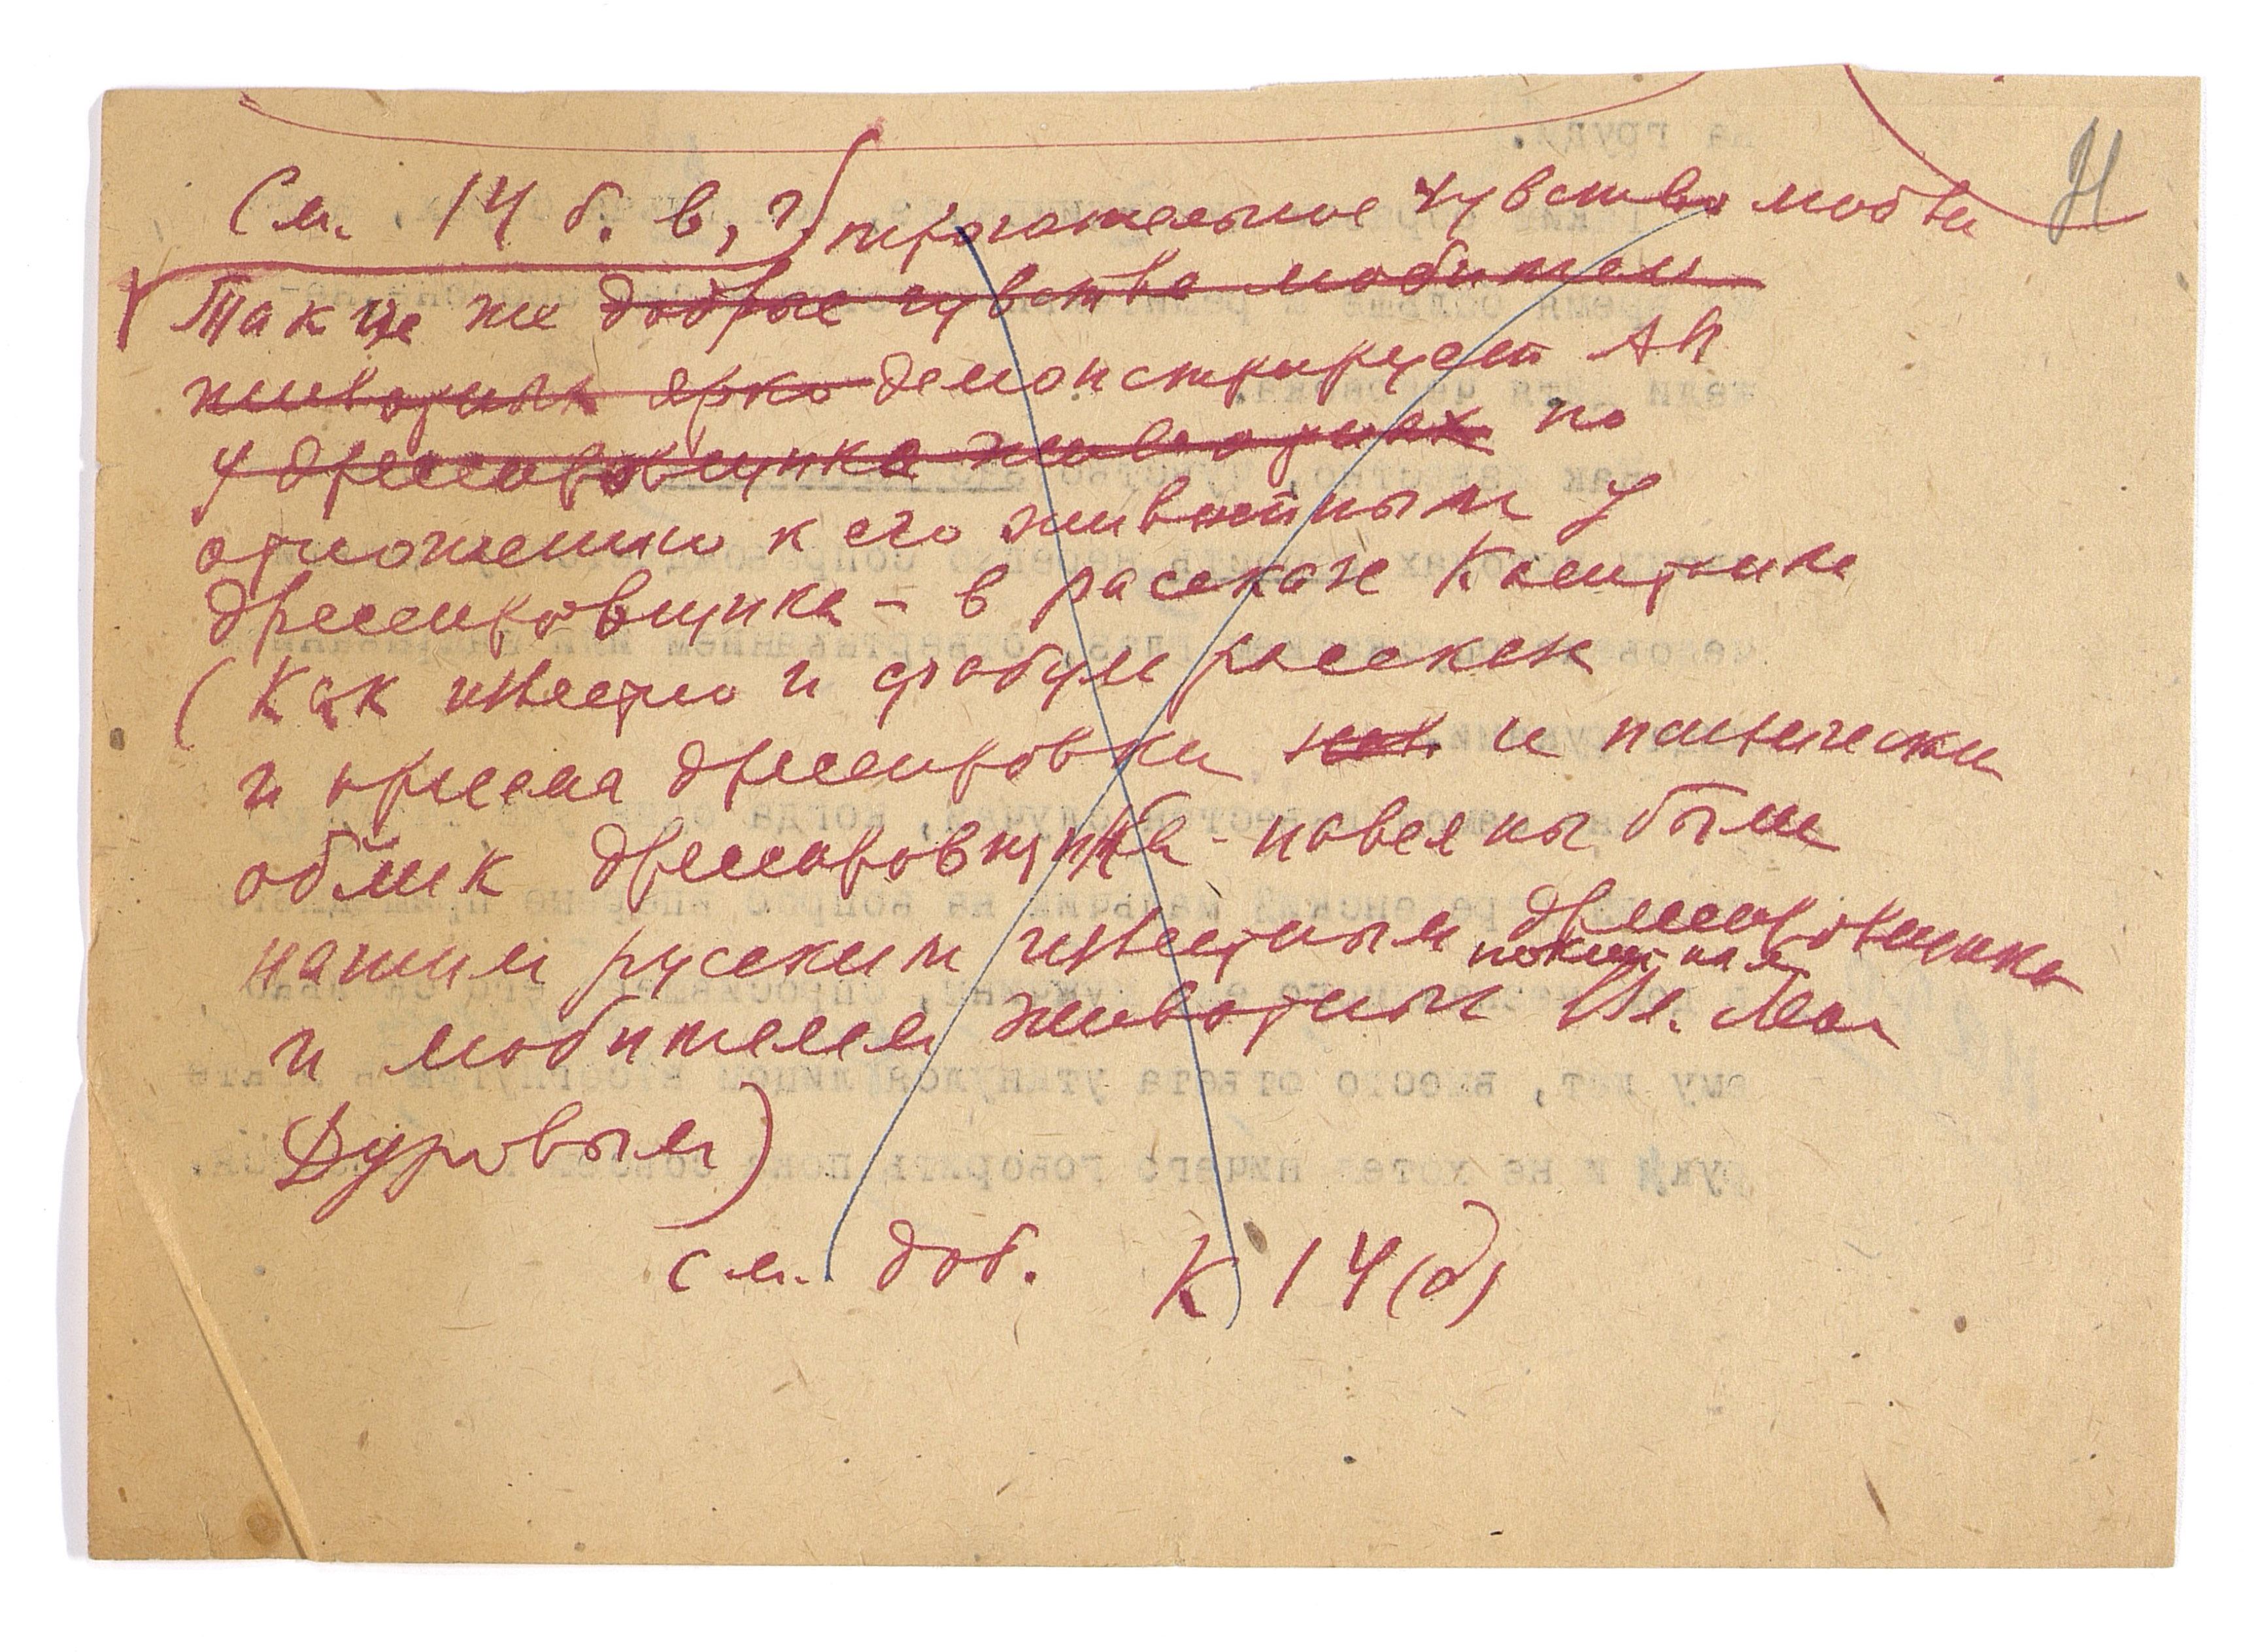 См. 14 б. в, г.
трогательное чувство любви
Такие же добрые чувства любител
животных ярко демонстрирует АП
у дрессировщика животных по
отношению к его животным у
дрессировщика – в рассказе Каштанка
(Как известно и фабула рассказа
и приемы дрессировки и и психически
облик дрессировщика – навеяны были
нашим русским известным дрессировщика
покойным
и любителем животных Вл. Леон
Дуровым)
см. доб. К 14 (д)